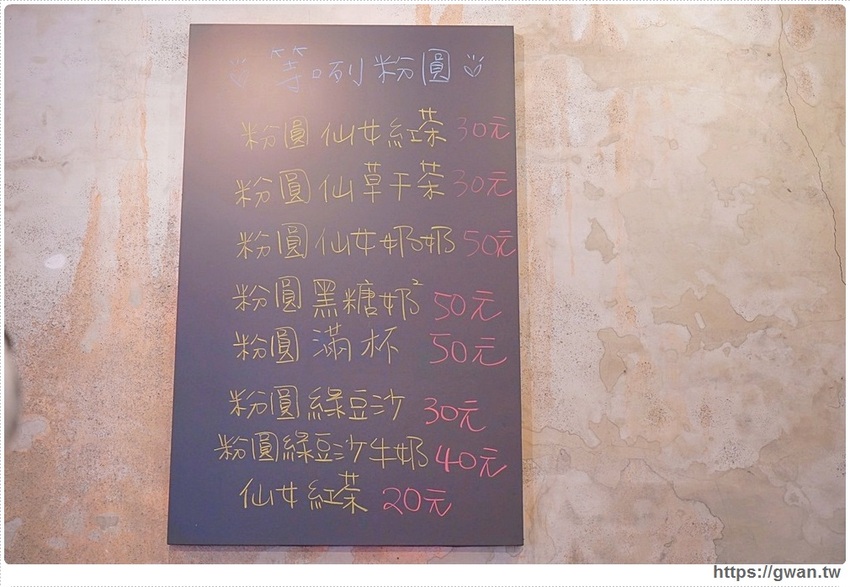 等咧粉圓
粉圓仙女紅茶 30元
粉圓仙草干茶 30元
粉圓仙女奶奶 50元
粉圓黑糖奶² 50元
粉圓滿杯 50元
粉圓綠豆沙 30元
粉圓綠豆沙牛奶 40元
仙女紅茶 20元
https://gwan.tw